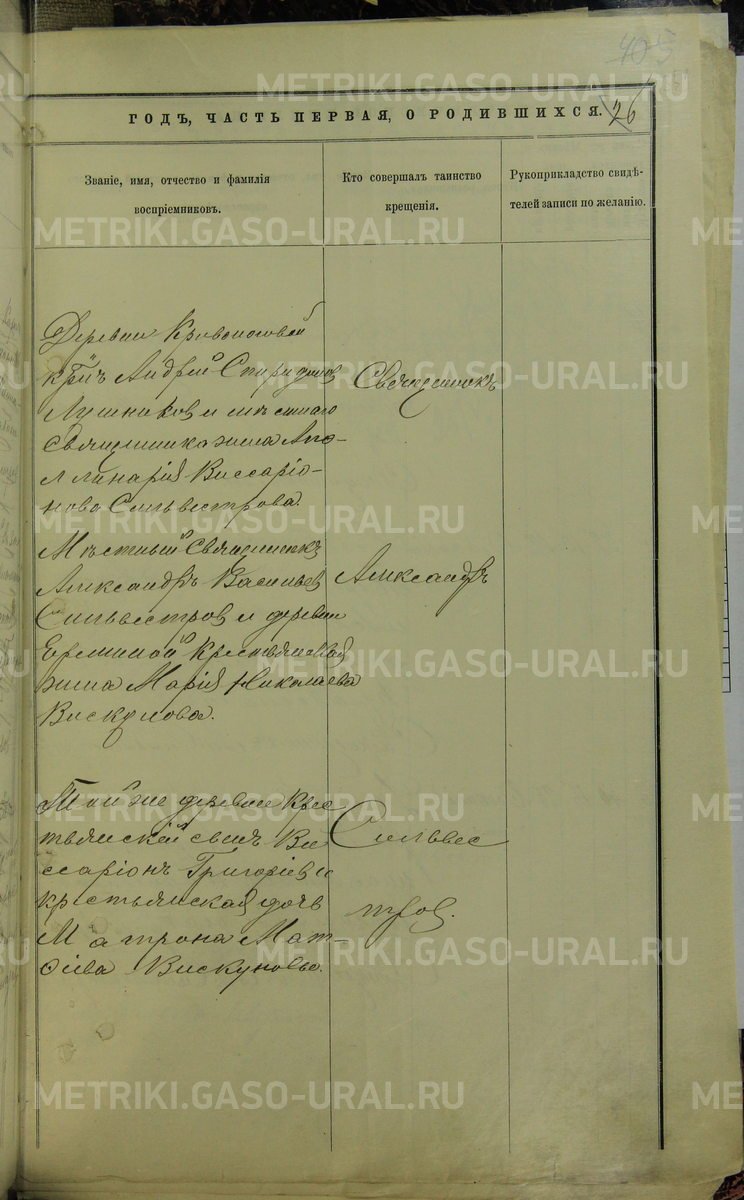 405
ГОДЪ, ЧАСТЬ ПЕРВАЯ, О РОДИВШИХСЯ. 26
Званіе, имя, отчество и фамилія
воспріемниковъ.
Кто совершалъ таинство
крещенія.
Рукоприкладство свидѣ-
телей записи по желанію.
Деревни Кривоноговой
Андрей Спиридонов
Лушников и мѣстнаго
священника жена Апо-
ллинарія Виссаріо-
нова Сильвестрова.
Мѣстный Священникъ
Александръ Васильев
Сильвестров и деревни
крестьянская
жена Марія Николаева
Вискунова.
Той же деревни Крес
тьянскій сынъ Ви
ссаріонъ Григоріев и
крестьянская дочь
Матрона Мат-
ѳіева Вискуновы.
Священникъ
Александръ
Сильвес
тров.
METRIKI.GASO-URAL.RU